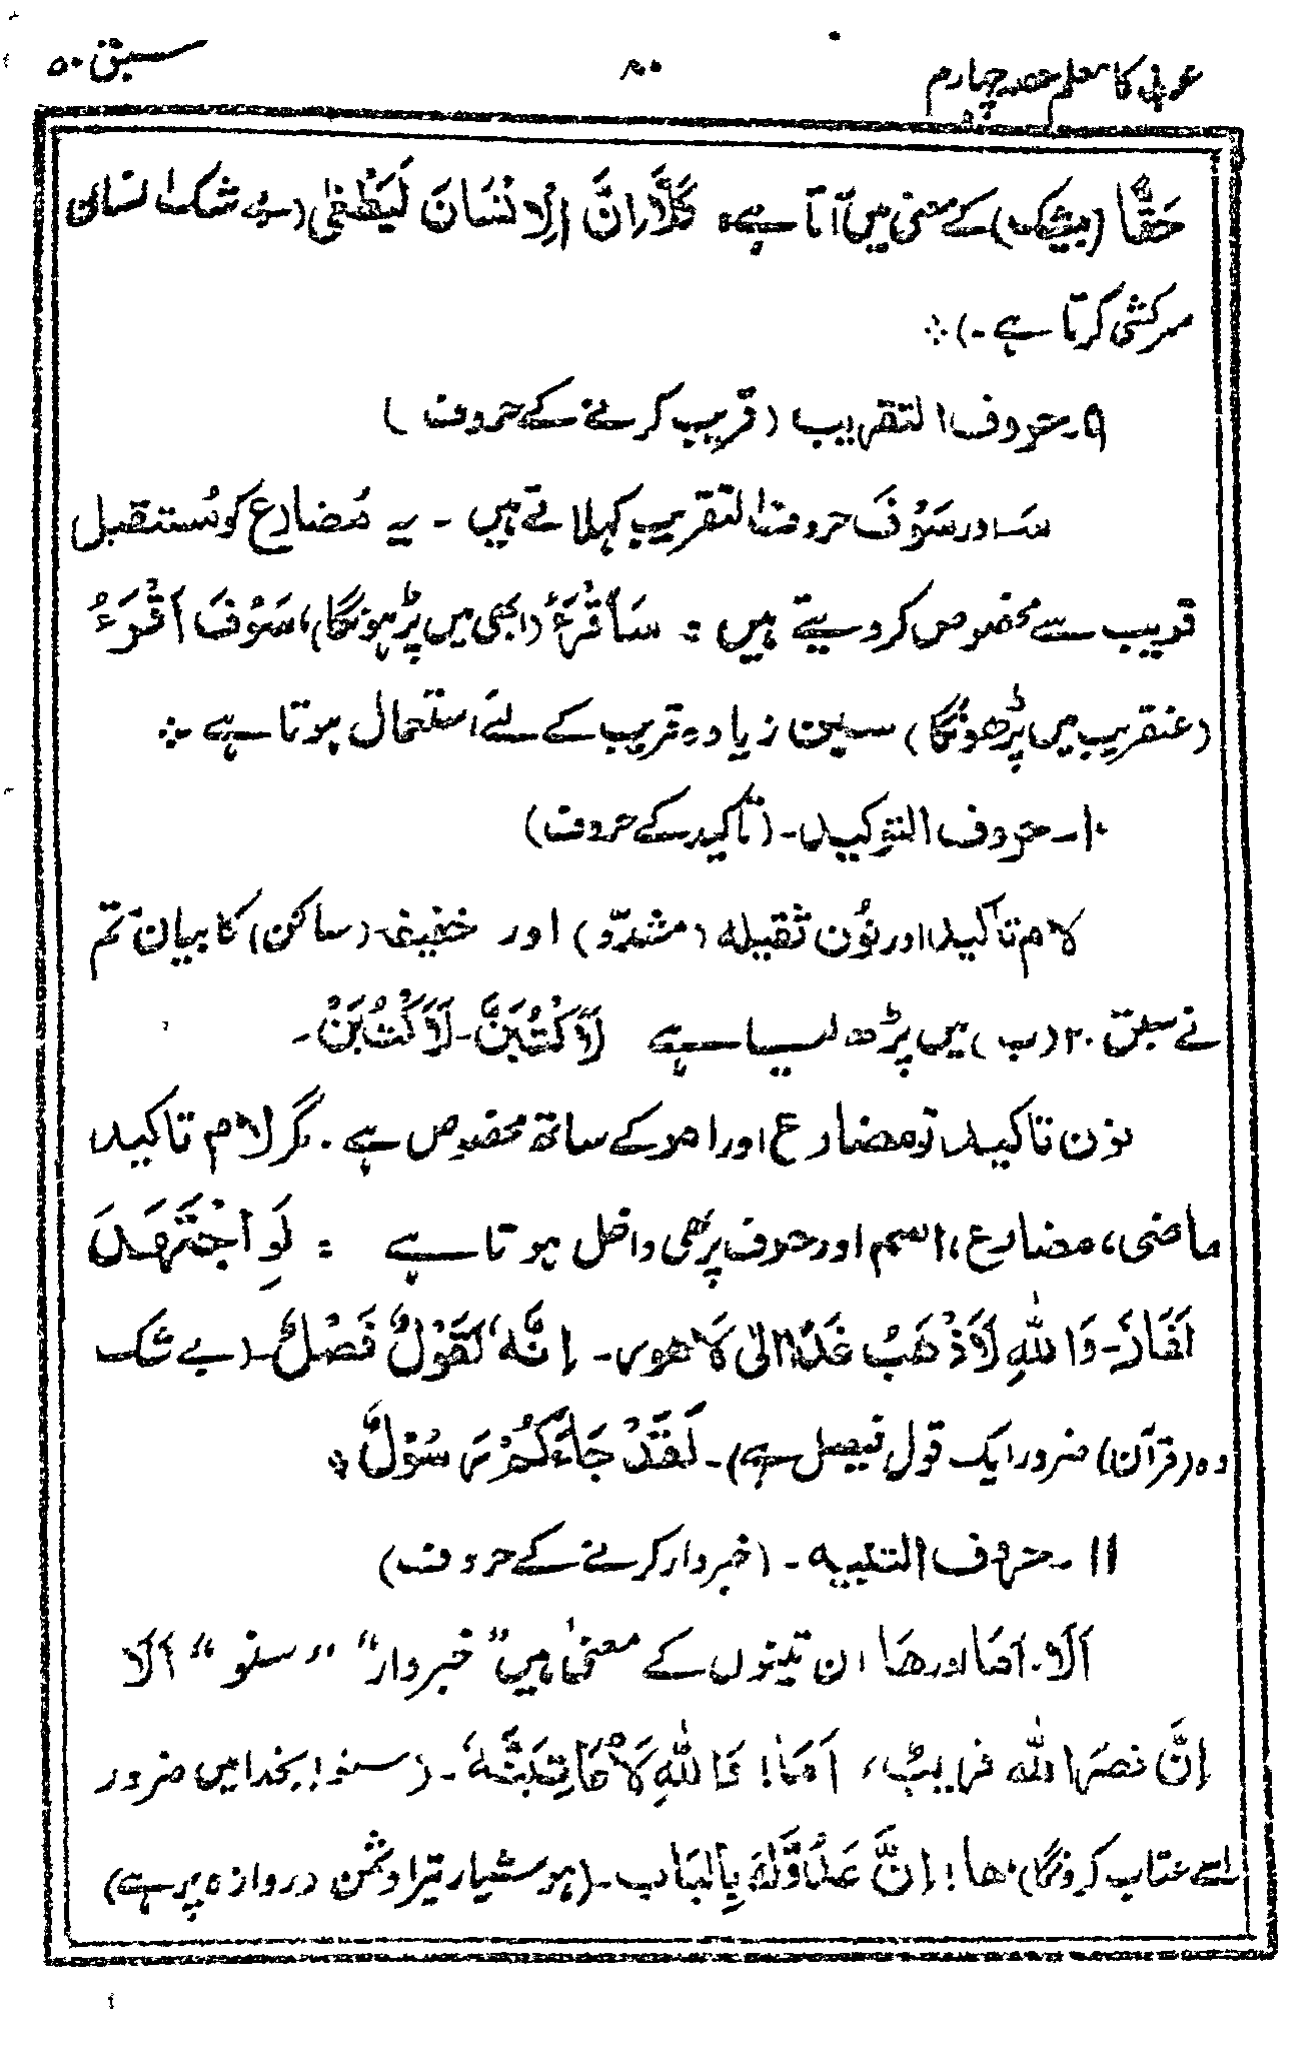 عربی کا معلم حصہ چہارم ۸۰ سبق ۵۰
حَقًّا (بیشک) کے معنی میں آتا ہے: کَلَّا اِنَّ الْاِنْسَانَ لَیَطْغٰی (بے شک انسان
سرکشی کرتا ہے۔) ∻
۹۔ حروف التقریب (قریب کرنے کے حروف)
سَـ اور سَوْفَ حروف التقریب کہلاتے ہیں ۔ یہ مُضارع کو مُستقبل
قریب سے مخصوص کر دیتے ہیں : سَاَقْرَءُ (ابھی میں پڑہونگا)، سَوْفَ اَقْرَءُ
(عنقریب میں پڑھونگا) سین زیادہ قریب کے لئے استعمال ہوتا ہے ∻
۱۰۔ حروف التوکید۔ (تاکید کے حروف)
لام تاکید اور نُون ثقیلہ (مشدّد) اور خفیفہ (ساکن) کا بیان تم
نے سبق ۲۰ (ب) میں پڑھ لیا ہے لَاَکْتُبَنَّ۔ لَاَکْتُبَنْ۔
نون تاکید تو مضارع اور امر کے ساتھ مخصوص ہے۔ مگر لام تاکید
ماضی، مضارع، اسم اور حرف پر بھی داخل ہوتا ہے : لَوِ اجْتَهَدَ
لَفَازَ۔ وَاللهِ لَاَذْهَبُ غَدًا اِلٰی لَاهور۔ اِنَّهٗ لَقَوْلٌ فَصْلٌ۔ (بے شک
وہ (قرآن) ضرور ایک قولِ فیصل ہے)۔ لَقَدْ جَاءَکُمْ رَسُوْلٌ ∻
۱۱۔ حروف التنبیہ ۔ (خبردار کرنے کے حروف)
اَلَا۔ اَمَا اور هَا ان تینوں کے معنیٰ ہیں "خبردار" "سنو" اَلَا
اِنَّ نصرَ الله قریبٌ، اَمَا! وَاللهِ لَاُعَاتِبَنَّهٗ ۔ (سنو! بخدا میں ضرور
اسے عتاب کرونگا) ها! اِنَّ عَدُوَّکَ بِالبَاب۔ (ہوشیار تیرا دشمن دروازہ پر ہے)